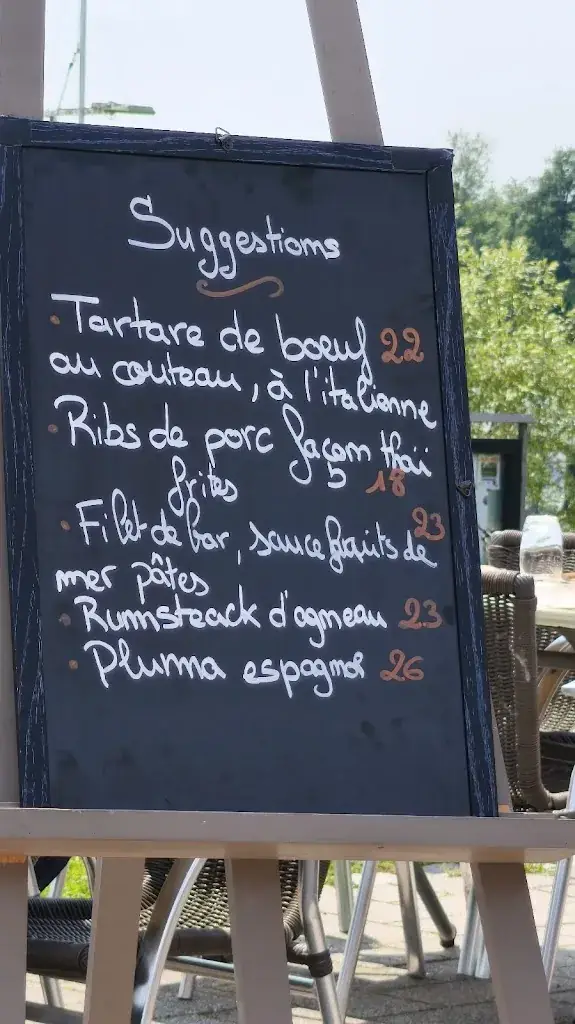 Suggestions
• Tartare de boeuf 22
au couteau, à l'italienne
• Ribs de porc façon thaï
frites 18
• Filet de bar, sauce fruits de 23
mer pâtes
• Rumsteack d'agneau 23
• Pluma espagnol 26